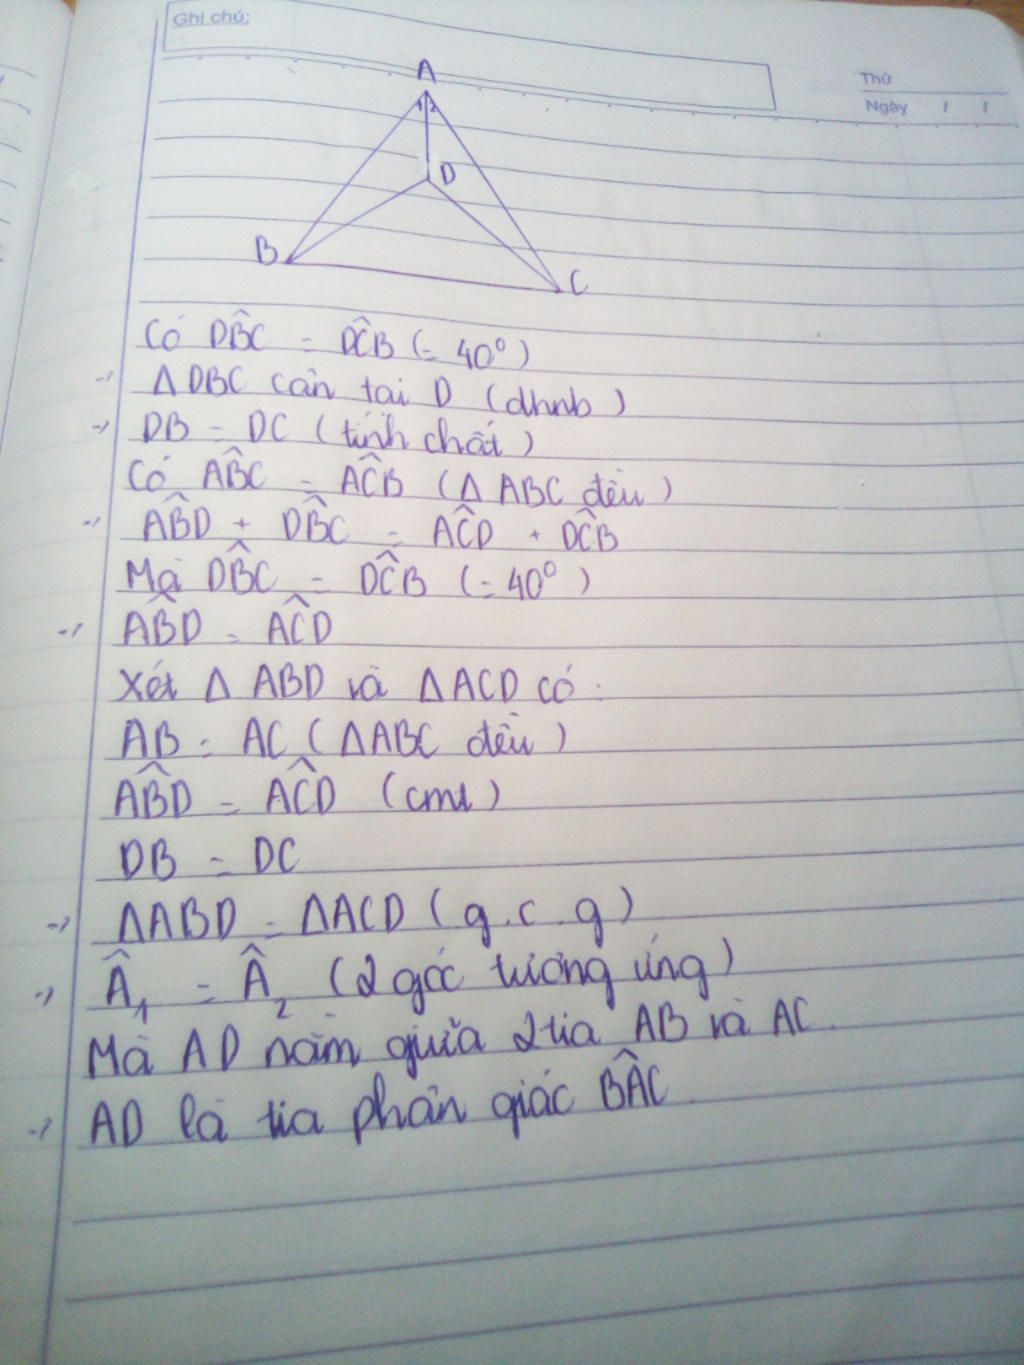 Ghi chú:
Thứ
Ngày / /
A
1 2
D
B
C
Có DB̂C = DĈB (= 40°)
-> Δ DBC cân tại D (dhnb)
-> DB = DC (tính chất)
Có AB̂C = AĈB (Δ ABC đều)
-> AB̂D + DB̂C = AĈD + DĈB
Mà DB̂C = DĈB (= 40°)
-> AB̂D = AĈD
Xét Δ ABD và Δ ACD có :
AB = AC (ΔABC đều)
AB̂D = AĈD (cmt)
DB = DC
-> ΔABD = ΔACD (g.c.g)
-> Â₁ = Â₂ (2 góc tương ứng)
Mà AD nằm giữa 2 tia AB và AC.
-> AD là tia phân giác BÂC.